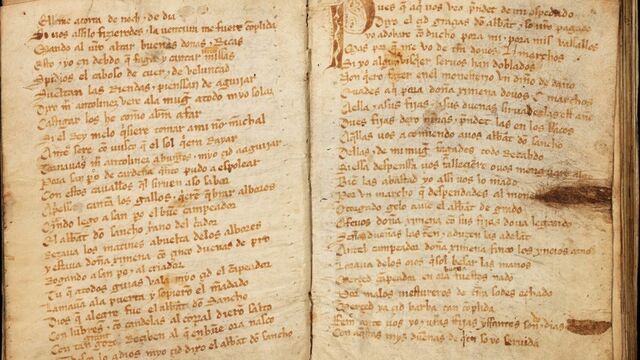 Ella me acorra de noch τ de dia
Si vos assi lo fizieredes τ la ventura me fuere cōplida
Mando al uro altar buenas donas τ Ricas
Esto τ yo en debdo q̄ faga y cantar mill missas
Spidios el caboso de cuer τ de veluntad
Sueltan las Riendas τ pienssan de aguijar
Dixo mͬ antolinez vere ala mugͥ atodo myo solaz
Castigar los he como abran afar
Si el Rey melo q̄siere tomar ami nō minchal
Antes sere cō uusco q̄ el sol q̄era Rayar
Tornauas mͬ antolinez aburgͦs τ myo çid aaguijar
Pora san pͦ de cardeña q̄nto pudo a espolear
Con estos cauallͦs ql̄ siruen aso sabor
Apͥessa cantan los gallos τ q̄ere q̄brar albores
Qͣndo lego a san pͦ el buē campeador
El abbat dō sancho xͣno del cͥador
Rezaua los matines abuelta delos albores
Y estaua doña ximena cō cinco dueñas de pro
Rogando a san pͦ τ al cͥador
Tu q̄ atodos guias val a myo çid el canpeador
Lamauā ala puerta y sopierō el mādado
Dios q̄ alegre fue el abbat dō sancho
Con lūbres τ cō candelas al corral dierō salto
Con tan grant gozo Reçiben al q̄ en buē ora nasco
lo a dios myo çid dixo el abbat dō sancho
Pues q̄ aq̄ vos veo pͬndet de mi ospedado
Dixo el çid grͣçias dō abbat τ so uro pagado
yo adobare cōducho pora mi τ pora mis vassallos
Mas por q̄ me vo de tͥra douos L marchos
Si yo algun dia visquier seruos han doblados
Non q̄ero fazer en el monesterio vn dinͦ de daño
Euades aq̄ pora doña ximena douos C marchos
Aella τ asus fijas τ asus dueñas siruades las est año
Dues fijas dexo niñas τ pͬndet las en los braços
Aq̄llas vos acomiendo auos abbat dō sancho
Dellas τ de mi mugͥ fagades todo Recabdo
Si essa despenssa vos falleçiere o uos menguare algo
Biē las abastad yo assi vos lo mādo
Por vn marcho q̄ despendades al monesterio
Otorgado gelo auie el abbat de grado
Afeuos doña ximena cō sus fijas do ua legando
Señas dueñas las traē τ aduzē las adelāt
Antel campeador doña ximena fincó los ynoios amos
Loraua delos oios q̄sol besar las manos
Merçed canpeador en ora buena fuestes nado
Por malos mestureros de tͥra sodes echado
Merçed ya çid barba tan cōplida
Fem ante vos yo τ uras fijas yffantes son τ de dias
Con aq̄stas mys dueñas de q̄en so yo seruida